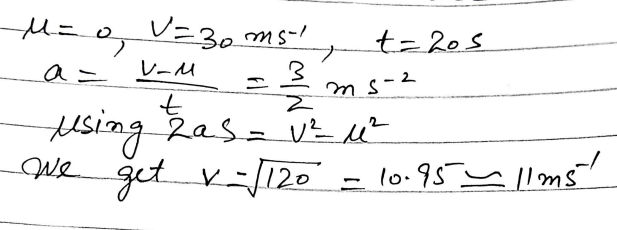 u = 0, V = 30 ms⁻¹, t = 20 s
a = (v-u)/t = 3/2 m s⁻²
using 2as = v² - u²
we get v = √120 = 10.95 ≃ 11 ms⁻¹